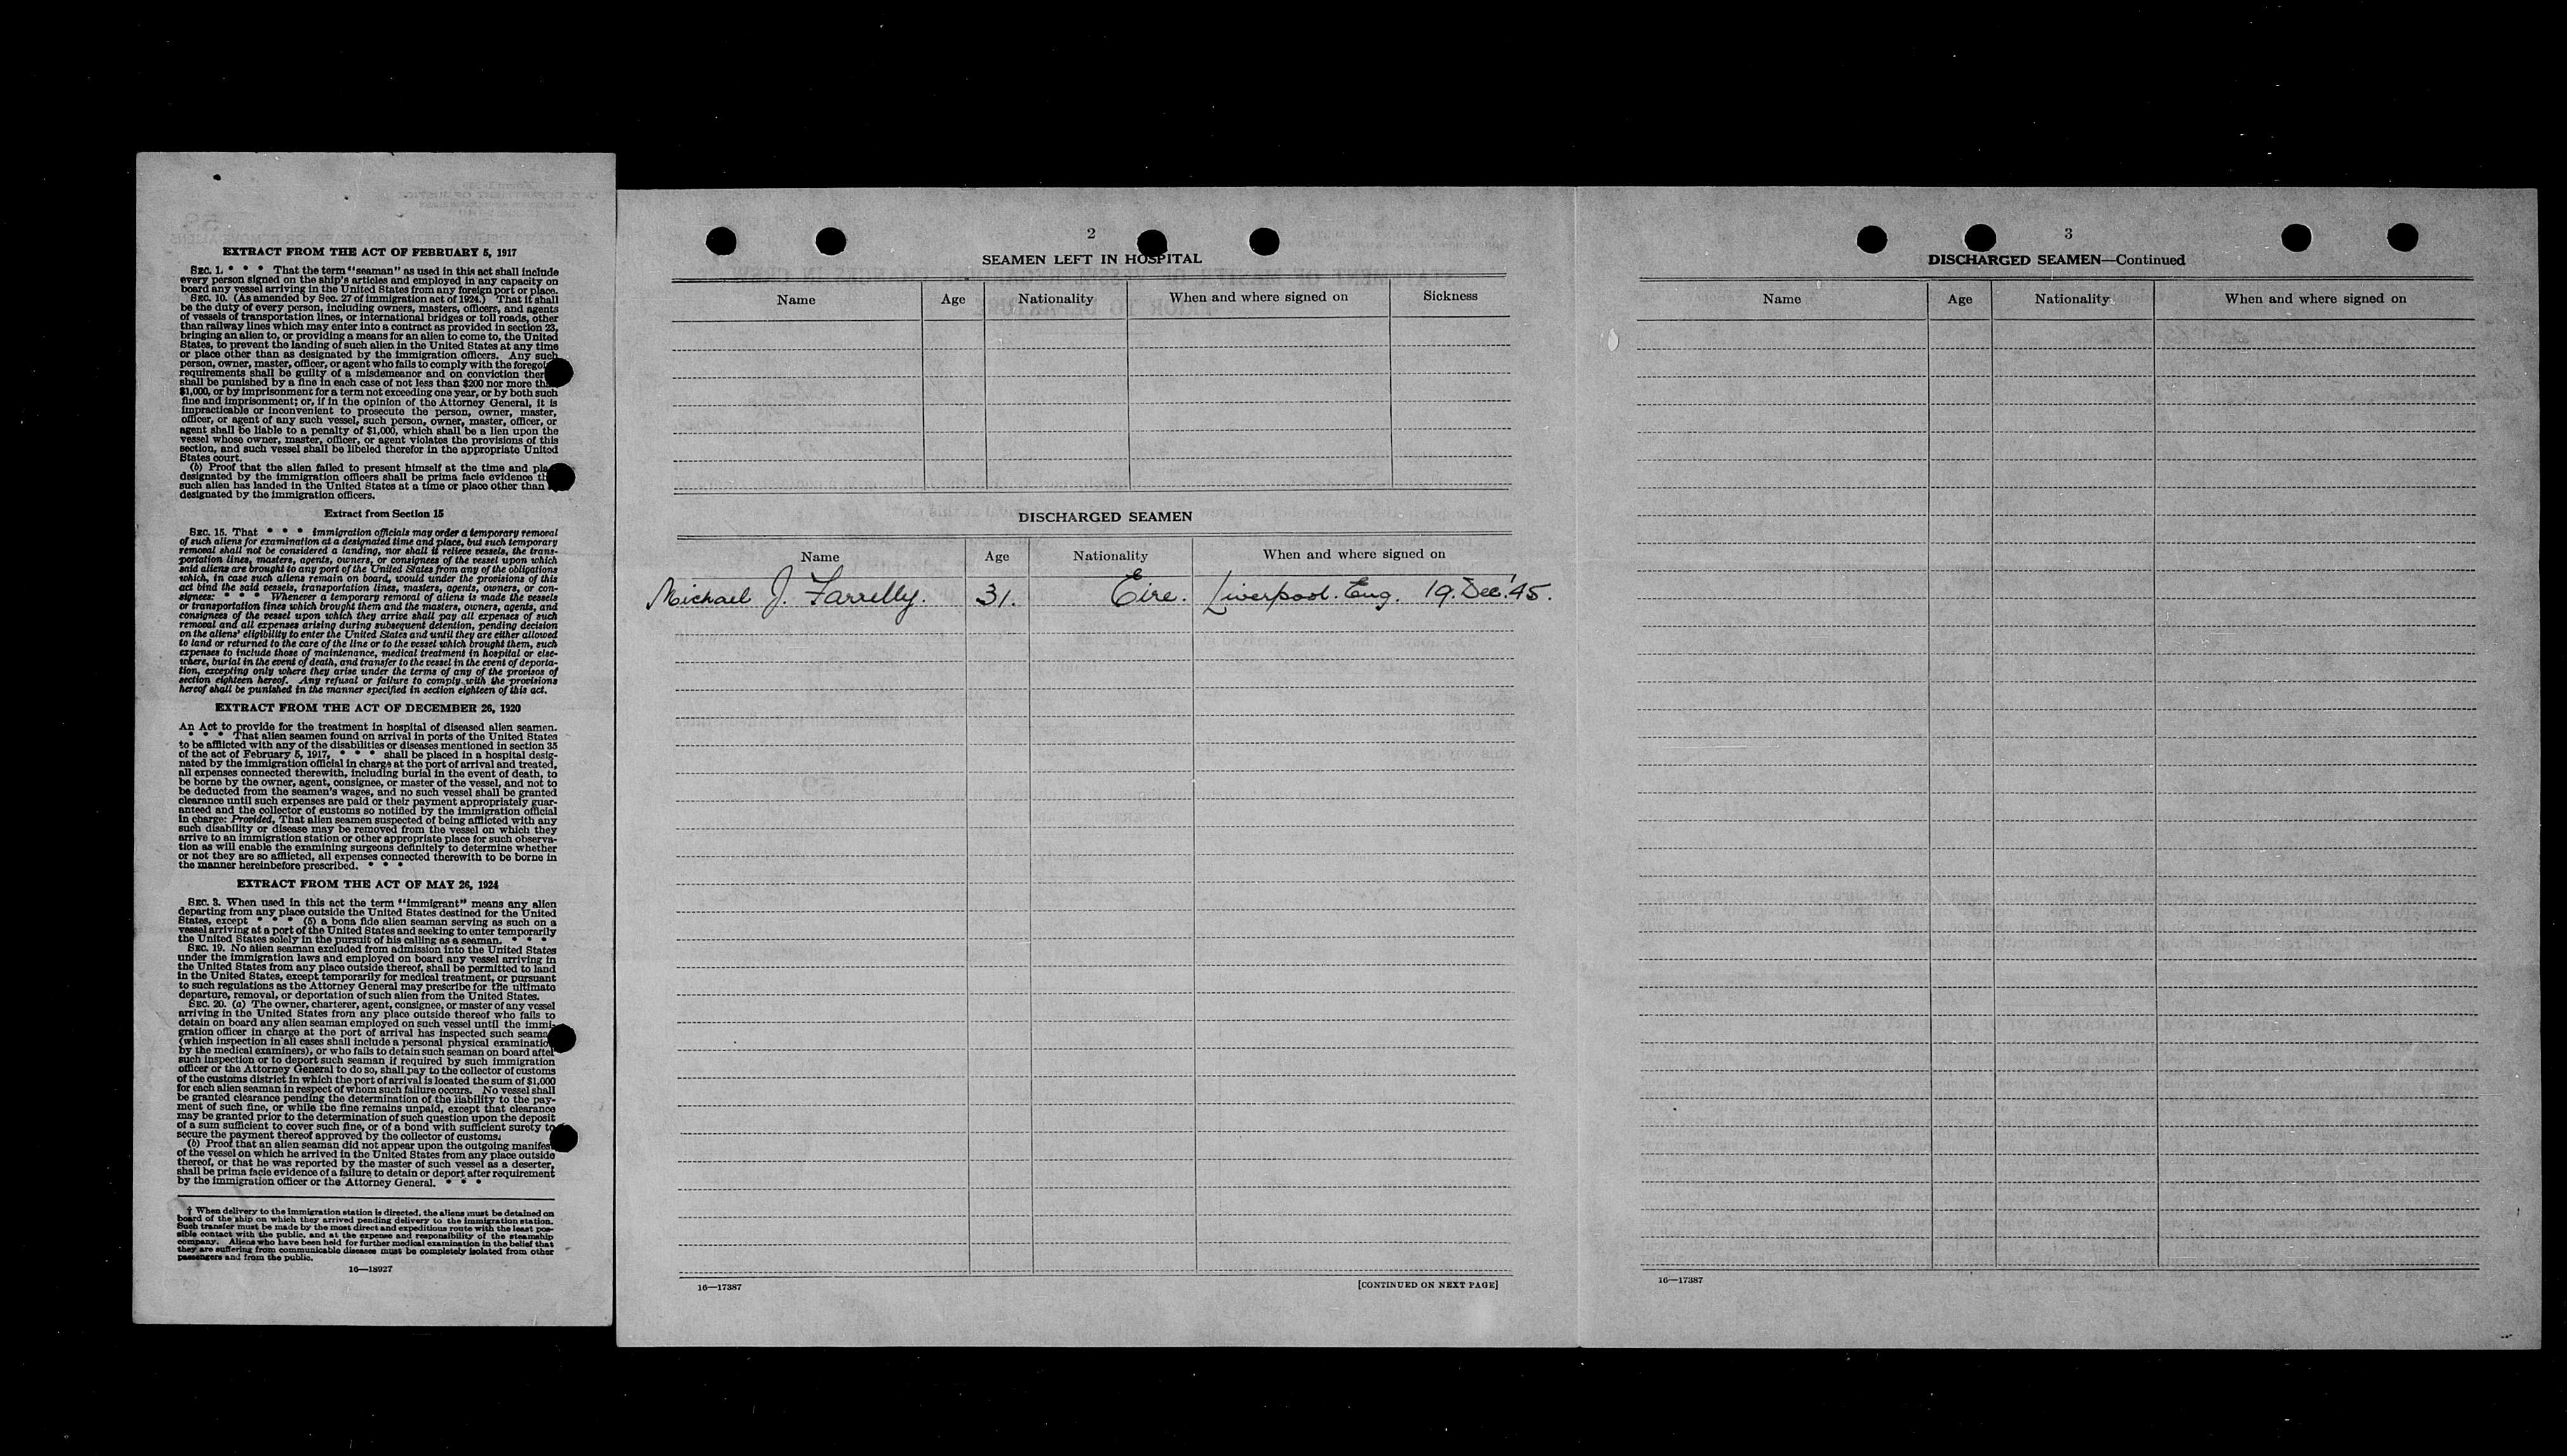 EXTRACT FROM THE ACT OF FEBRUARY 5, 1917
SEC. 1. * * * That the term "seaman" as used in this act shall include
every person signed on the ship's articles and employed in any capacity on
board any vessel arriving in the United States from any foreign port or place.
SEC. 10. (As amended by Sec. 27 of immigration act of 1924.) That it shall
be the duty of every person, including owners, masters, officers, and agents
of vessels of transportation lines, or international bridges or toll roads, other
than railway lines which may enter into a contract as provided in section 23,
bringing an alien to, or providing a means for an alien to come to, the United
States, to prevent the landing of such alien in the United States at any time
or place other than as designated by the immigration officers. Any such
person, owner, master, officer, or agent who fails to comply with the foregoi
requirements shall be guilty of a misdemeanor and on conviction ther
shall be punished by a fine in each case of not less than $200 nor more th
$1,000, or by imprisonment for a term not exceeding one year, or by both such
fine and imprisonment; or, if in the opinion of the Attorney General, it is
impracticable or inconvenient to prosecute the person, owner, master,
officer, or agent of any such vessel, such person, owner, master, officer, or
agent shall be liable to a penalty of $1,000, which shall be a lien upon the
vessel whose owner, master, officer, or agent violates the provisions of this
section, and such vessel shall be libeled therefor in the appropriate United
States court.
(b) Proof that the alien failed to present himself at the time and pla
designated by the immigration officers shall be prima facie evidence th
such alien has landed in the United States at a time or place other than
designated by the immigration officers.
Extract from Section 15
SEC. 15. That * * * immigration officials may order a temporary removal
of such aliens for examination at a designated time and place, but such temporary
removal shall not be considered a landing, nor shall it relieve vessels, the trans-
portation lines, masters, agents, owners, or consignees of the vessel upon which
said aliens are brought to any port of the United States from any of the obligations
which, in case such aliens remain on board, would under the provisions of this
act bind the said vessels, transportation lines, masters, agents, owners, or con-
signees: * * * Whenever a temporary removal of aliens is made the vessels
or transportation lines which brought them and the masters, owners, agents, and
consignees of the vessel upon which they arrive shall pay all expenses of such
removal and all expenses arising during subsequent detention, pending decision
on the aliens' eligibility to enter the United States and until they are either allowed
to land or returned to the care of the line or to the vessel which brought them, such
expenses to include those of maintenance, medical treatment in hospital or else-
where, burial in the event of death, and transfer to the vessel in the event of deporta-
tion, excepting only where they arise under the terms of any of the provisos of
section eighteen hereof. Any refusal or failure to comply with the provisions
hereof shall be punished in the manner specified in section eighteen of this act.
EXTRACT FROM THE ACT OF DECEMBER 26, 1920
An Act to provide for the treatment in hospital of diseased alien seamen.
* * * That alien seamen found on arrival in ports of the United States
to be afflicted with any of the disabilities or diseases mentioned in section 35
of the act of February 5, 1917, * * * shall be placed in a hospital desig-
nated by the immigration official in charge at the port of arrival and treated,
all expenses connected therewith, including burial in the event of death, to
be borne by the owner, agent, consignee, or master of the vessel, and not to
be deducted from the seamen's wages, and no such vessel shall be granted
clearance until such expenses are paid or their payment appropriately guar-
anteed and the collector of customs so notified by the immigration official
in charge: Provided, That alien seamen suspected of being afflicted with any
such disability or disease may be removed from the vessel on which they
arrive to an immigration station or other appropriate place for such observa-
tion as will enable the examining surgeons definitely to determine whether
or not they are so afflicted, all expenses connected therewith to be borne in
the manner hereinbefore prescribed. * * *
EXTRACT FROM THE ACT OF MAY 26, 1924
SEC. 3. When used in this act the term "immigrant" means any alien
departing from any place outside the United States destined for the United
States, except * * * (5) a bona fide alien seaman serving as such on a
vessel arriving at a port of the United States and seeking to enter temporarily
the United States solely in the pursuit of his calling as a seaman. * * *
SEC. 19. No alien seaman excluded from admission into the United States
under the immigration laws and employed on board any vessel arriving in
the United States from any place outside thereof, shall be permitted to land
in the United States, except temporarily for medical treatment, or pursuant
to such regulations as the Attorney General may prescribe for the ultimate
departure, removal, or deportation of such alien from the United States.
SEC. 20. (a) The owner, charterer, agent, consignee, or master of any vessel
arriving in the United States from any place outside thereof who fails to
detain on board any alien seaman employed on such vessel until the immi-
gration officer in charge at the port of arrival has inspected such seama
(which inspection in all cases shall include a personal physical examinatio
by the medical examiners), or who fails to detain such seaman on board after
such inspection or to deport such seaman if required by such immigration
officer or the Attorney General to do so, shall pay to the collector of customs
of the customs district in which the port of arrival is located the sum of $1,000
for each alien seaman in respect of whom such failure occurs. No vessel shall
be granted clearance pending the determination of the liability to the pay-
ment of such fine, or while the fine remains unpaid, except that clearance
may be granted prior to the determination of such question upon the deposit
of a sum sufficient to cover such fine, or of a bond with sufficient surety to
secure the payment thereof approved by the collector of customs.
(b) Proof that an alien seaman did not appear upon the outgoing manifes
of the vessel on which he arrived in the United States from any place outside
thereof, or that he was reported by the master of such vessel as a deserter,
shall be prima facie evidence of a failure to detain or deport after requirement
by the immigration officer or the Attorney General. * * *
† When delivery to the immigration station is directed, the aliens must be detained on
board of the ship on which they arrived pending delivery to the immigration station.
Such transfer must be made by the most direct and expeditious route with the least pos-
sible contact with the public, and at the expense and responsibility of the steamship
company. Aliens who have been held for further medical examination in the belief that
they are suffering from communicable diseases must be completely isolated from other
passengers and from the public.
16—18927
2
SEAMEN LEFT IN HOSPITAL
Name Age Nationality When and where signed on Sickness
DISCHARGED SEAMEN
Name Age Nationality When and where signed on
Michael J. Farrelly. 31. Eire. Liverpool. Eng. 19. Dec. '45.
16—17387 [CONTINUED ON NEXT PAGE]
3
DISCHARGED SEAMEN—Continued
Name Age Nationality When and where signed on
16—17387